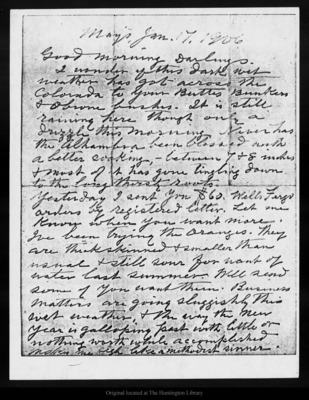 May's Jan. 17, 1906
Good morning Darlings.
I wonder if this dark wet
weather has got across the
Colorado to your Buttes Bunkers
& Obione bushes. It is still
raining here though only a
drizzle this morning. Never has
the Alhambra been blessed with
a better soaking, - between 7 & 8 inches
& most of it has gone tingling down
to the long thirsty roots.
Yesterday I sent you $60. Wells Fargo
orders by registered letter. Let me
know when you want more.
I've been trying the oranges. They
are thickskinned & smaller than
usual & still sour for want of
water last summer. Will send
some if you want them. Business
matters are going sluggishly this
wet weather & the way the New
Year is galloping past with little or
nothing worth while accomplished
makes me sigh like a methodist sinner.
Original located at The Huntington Library